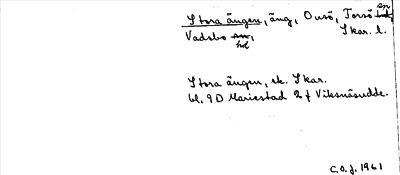 Stora ängen, äng, Onsö, Torsö sn
Vadsbo hd Skar. l.
Stora ängen, ek. Skar.
bl. 9D Mariestad 2 f Viksnäsudde.
C.O.J. 1961